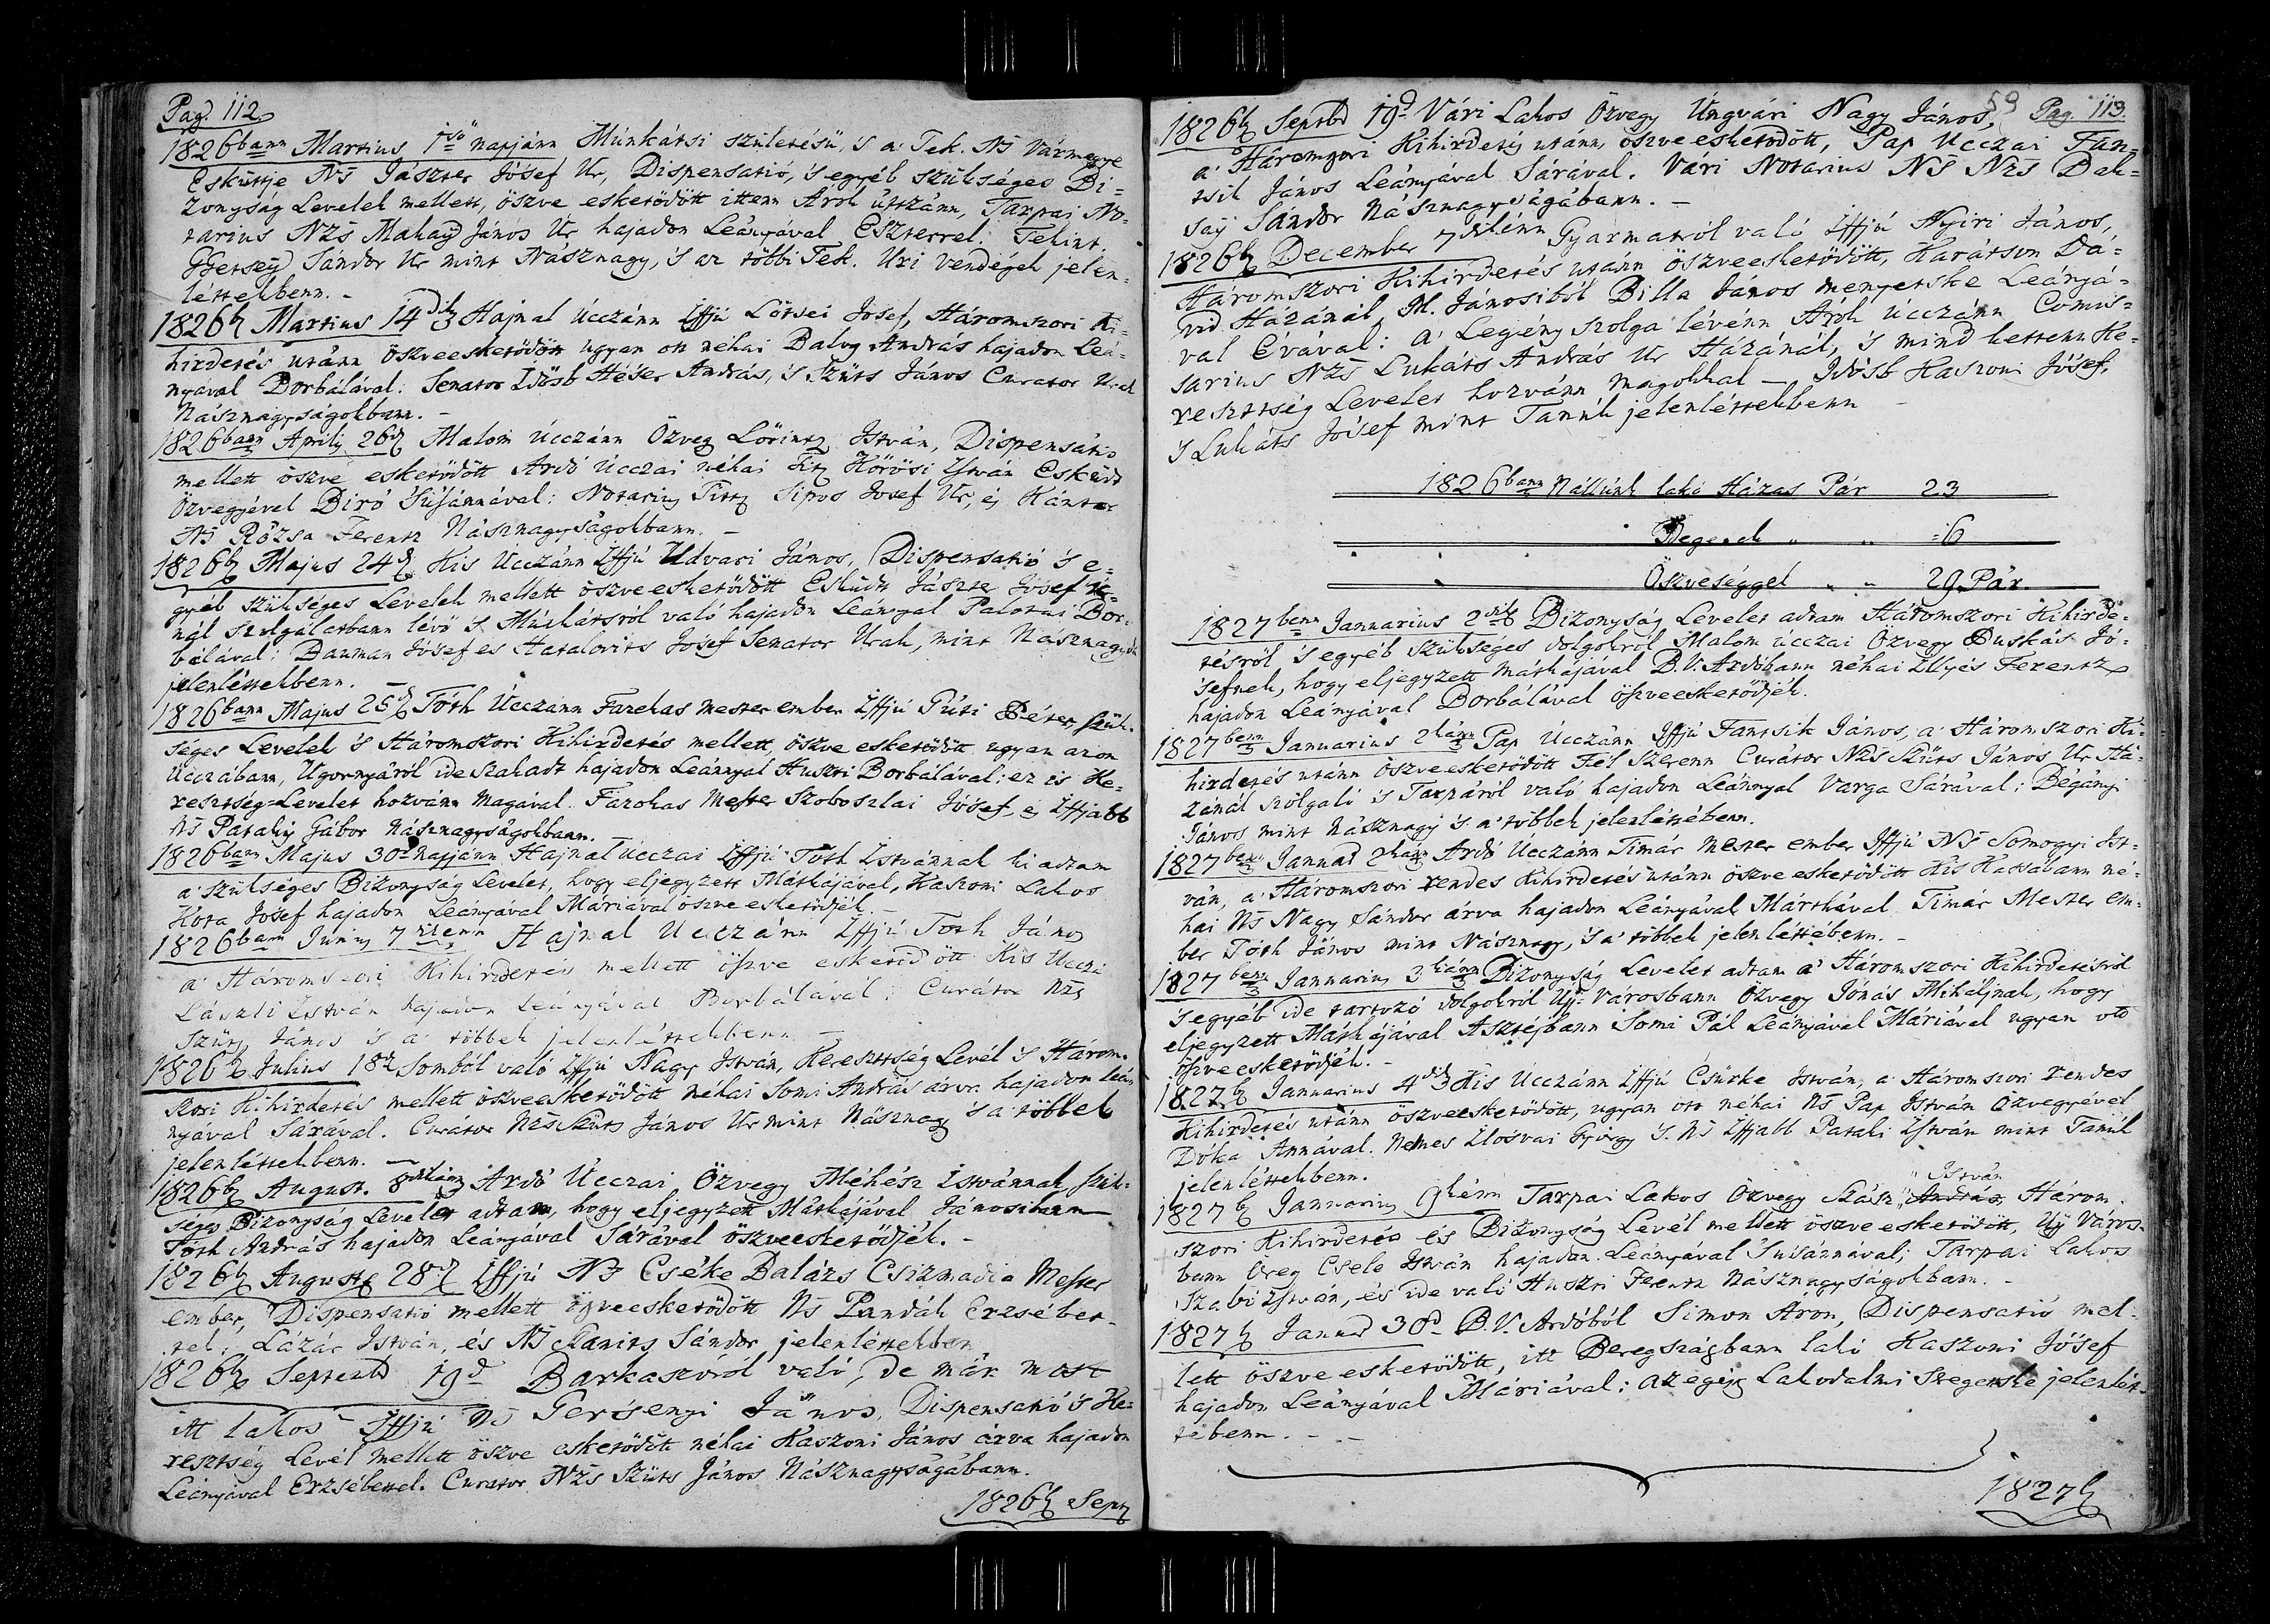 Pag. 112.
1826bann Martius 1ső napjánn Múnkátsi születésű, 's a' Tek. Ns Vármegye
Esküttje Ns Jászter Jósef Ur, Dispensatió, 's egyéb szükséges Bi=
zonyság Levelek mellett, öszve esketődött ittenn Árok úttzánn, Tarpai No=
tarius Nzs Makay János Ur hajadon Leányával Eszterrel. Tekint.
Getsey Sándor Ur mint Násznagy, 's az többi Tek. Uri Vendégek jelen=
léttekbenn. -
1826b Martius 14dik Hajnal Úcczánn Iffjú Lőtsei Josef, Háromszori Ki=
hirdetés utánn öszveesketődött ugyan ott néhai Balog András hajadon Leá=
nyával Borbálával. Senator Idősb Héser András, 's Szűts János Curator Urak
Násznagyságokbann. -
1826bann April 26d Malom Úcczánn Özveg Lőrintz István, Dispensatio
mellett öszve esketődött Ardó Úcczai néhai Tit Kőrősi István Esküdt
Özvegyével Biró Susánnával: Notarius Titt Sipos Josef Ur, és Kántor
Ns Rózsa Ferentz Násznagyságokbann. -
1826b Majus 24d Kis Úcczánn Iffjú Udvari János, Dispensatió 's e=
gyéb szükséges Levelek mellett öszveesketődött Esküdt Jászter Jósef Ur=
nál szolgálatbann lévő 's Múnkátsról való hajadon Leánnyal Palotai Bor=
bálával: Bauman Jósef es Hatalovits Jósef Senator Urak, mint Násznagyok
jelenléttekbenn. -
1826bann Majus 25d Tóth Úcczánn Fazekas mester ember Iffjú Púti Péter szük=
séges Levelek 's Háromszori Kihirdetés mellett, öszve esketődött ugyan azon
Úcczábann, Ugornyáról ide szakadt hajadon Leánnyal Huszti Borbálával: ez is Ke=
resztség=Levelet hozvánn magával. Fazokas Mester Szoboszlai Jósef, és Iffjabb
Ns Pataky Gábor Násznagyságokbann. -
1826bann Majus 30d napjánn Hajnal Úcczai Iffjú Tóth Istvánnak kiadtam
a' szükséges Bizonyság Levelet, hogy eljegyzett Mátkájával, Kaszoni Lakos
Kota Josef hajadon Leányával Máriával öszve esketődjék. -
1826bann Junius 7dikenn Hajnal Úcczánn Iffjú Tóth János
a' Háromszori Kihirdetés mellett öszve esketődött Kis Úcczi
László István hajadon Leányával Borbálával: Curátor Nzs
Szűts János 's a' többek jelenléttekbenn -
1826b Julius 18d Somból való Iffjú Nagy István, Keresztség Levél 's Három=
szori Kihirdetés mellett öszveesketődött néhai Somi András árva hajadon leá=
nyával Sárával. Curátor Nzs Szűts János Ur mint Násznagy 's a' többek
jelenléttekbenn. -
1826b August. 8dikánn Ardó Úcczai Özvegy Méhész Istvánnak szük=
séges Bizonyság Levelet adtam, hogy eljegyzett Mátkájával Jánosibann
Tóth András hajadon Leányával Sárával öszveesketődjék. -
1826b August 28d Iffjú Ns Cséke Balázs Csizmadia Mester
ember, Dispensatió mellett öszveesketődött Ns Pandák Erzsébet=
tel: Lázár István, és Ns Kanitz Sándor jelenléttekben
1826b Septemb 19d Barkaszóról való, de már most
itt lakos Iffjú Ns Gersenyi János, Dispensatió 's Ke=
resztség Levél mellett öszve esketődött néhai Kaszoni János árva hajadon
Leányával Erzsébettel. Curator Nzs Szűts János Násznagyságábann.
1826b Sept
59 Pag. 113.
1826b Septbr 19d Vári Lakos Özvegy Ungvári Nagy János,
a' Háromszori Kihirdetés utánn, öszveesketődött, Pap Ucczai Fan=
tsik János Leányával Sárával. Vári Notarius Ns Nzs Bak=
say Sándor Násznagyságábann. -
1826b December 7dikénn Gyarmatról való Iffjú Nyiri János,
Háromszori Kihirdetés utánn öszveesketődött, Karátson Dá=
vid Házánál, M. Jánosiból Billa János menyetske Leányá=
val Évával: a' Legény szolga lévénn Árok Úcczánn Comis=
sarius Nzs Lukáts András Ur Házánál, 's mind kettenn Ke=
resztség Levelet hozvánn magokkal - Idősb Kaszoni Jósef,
's Lukáts Jósef mint Tanúk jelenléttekbenn -
1826bann Nállúnk lakó Házas Pár 23
Idegenek " " =6
Öszveséggel " " 29 Pár.
1827benn Januarius 2dik Bizonyság Levelet adtam Háromszori Kihirde=
tésről 's egyéb szükséges dolgokról Malom úcczai Özvegy Puskás Jó=
'sefnek, hogy eljegyzett mátkájával B.V. Ardóbann néhai Illyés Ferentz
hajadon Leányával Borbálával öszveesketődjék.
1827benn Januarius 2kánn Pap Úcczánn Iffjú Fantsik János, a' Háromszori Ki=
hirdetés utánn öszveesketődött Fél Szerenn Curátor Nzs Szűts János Ur Há=
zánál szolgaló 's Tarpáról való hajadon Leánnyal Varga Sárával: Bégányi
János mint Násznagy 's a' többek jelenléttébenn.
1827benn Januar 2kánn Ardó Úcczánn Timár Mester ember Iffjú Ns Somogyi Ist=
ván, a' Háromszori rendes Kihirdetés utánn öszve esketődött Kis Kassábann né=
hai Ns Nagy Sándor árva hajadon Leányával Márthával. Timár Mester em=
ber Tóth János mint Násznagy, 's a' többek jelenléttébenn. -
1827benn Januarius 3kánn Bizonyság Levelet adtam a' Háromszori Kihirdetésről
's egyéb ide tartozó dolgokról Ujj Városbann Özvegy Jónás Mihálynak, hogy
eljegyzett Mátkájával Asztéjbann Somi Pál Leányával Máriával ugyan ott
öszveesketődjék. -
1827b Januarius 4dik Kis Úcczánn Iffjú Csürke István, a' Háromszori rendes
Kihirdetés utánn öszveesketődött, ugyan ott néhai Ns Pap István Özvegyével
Dóka Annával. Nemes Ilosvai György 's Ns Iffjabb Pataki István mint Tanúk
jelenléttekbenn.
1827b Januarius 9kénn Tarpai Lakos Özvegy Szász " András " István Három=
szori Kihirdetés és Bizonyság Levél mellett öszve esketődött, Ujj Város=
bann Öreg Csele István hajadon Leányával Susánnával; Tarpai Lakos
Szabó István, és ide való Huszti Ferentz Násznagyságokbann. -
1827b Januar 30d B.V. Ardóból Simon Áron, Dispensatió mel=
lett öszve esketődött, itt Beregszászbann lakó Kaszoni Jósef
hajadon Leányával Máriával: az egész Lakodalmi Seregetske jelenlét=
tébenn. - -
1827b